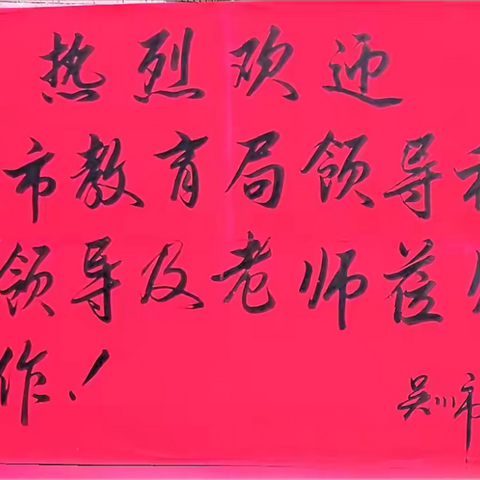 热烈欢迎
市教育局领导
领导及老师莅
作！
吴川市